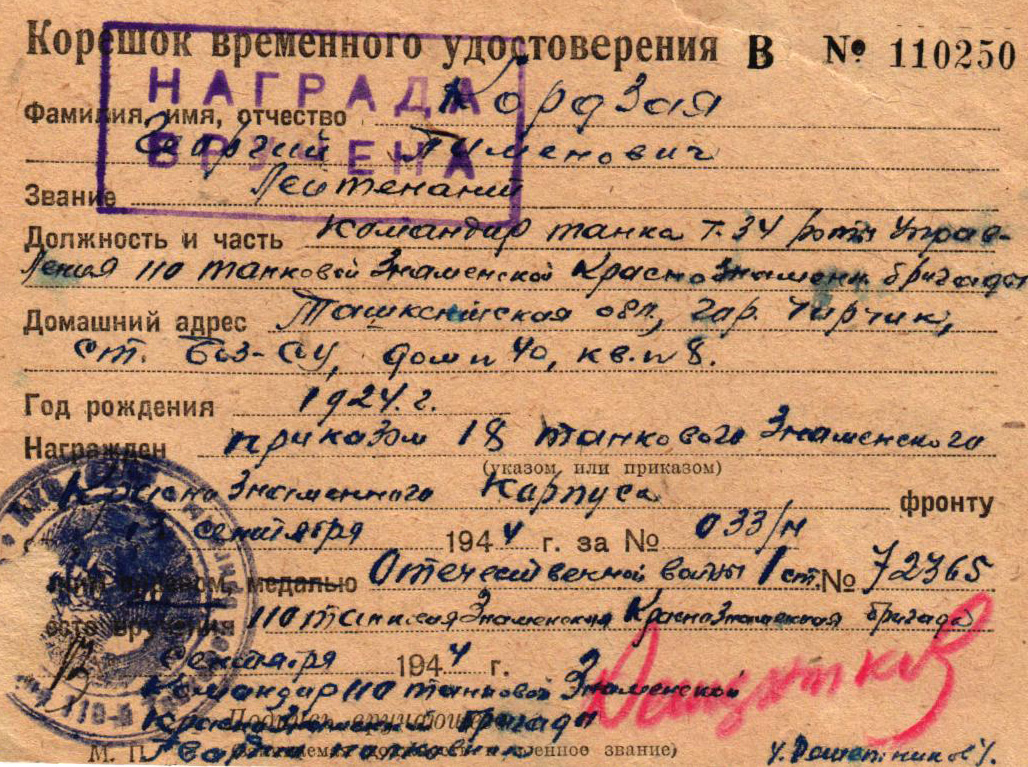 Корешок временного удостоверения В № 110250
НАГРАДА
ВРУЧЕНА
Фамилия, имя, отчество Кордзая
Георгий Пименович
Звание Лейтенант
Должность и часть Командир танка Т.34 роты Управ-
ления 110 танковой Знаменской Краснознамен. бригады
Домашний адрес Ташкентская обл., гор. Чирчик,
ст. Боз-су, дом № 40, кв. № 8.
Год рождения 1924. г.
Награжден приказом 18 танкового Знаменского
(указом или приказом)
Краснознаменного Карпуса фронту
сентября 1944 г. за № 033/н
медалью Отечественной войны 1 ст. № 72365
вручения 110 танковая Знаменская Краснознаменная бригада
13 сентября 1944 г.
Командир 110 танковой Знаменской
Краснознаменной бригады
Подпись вручающего
Гвардии полковник
М. П. военное звание)
Решетников
(Решетников).